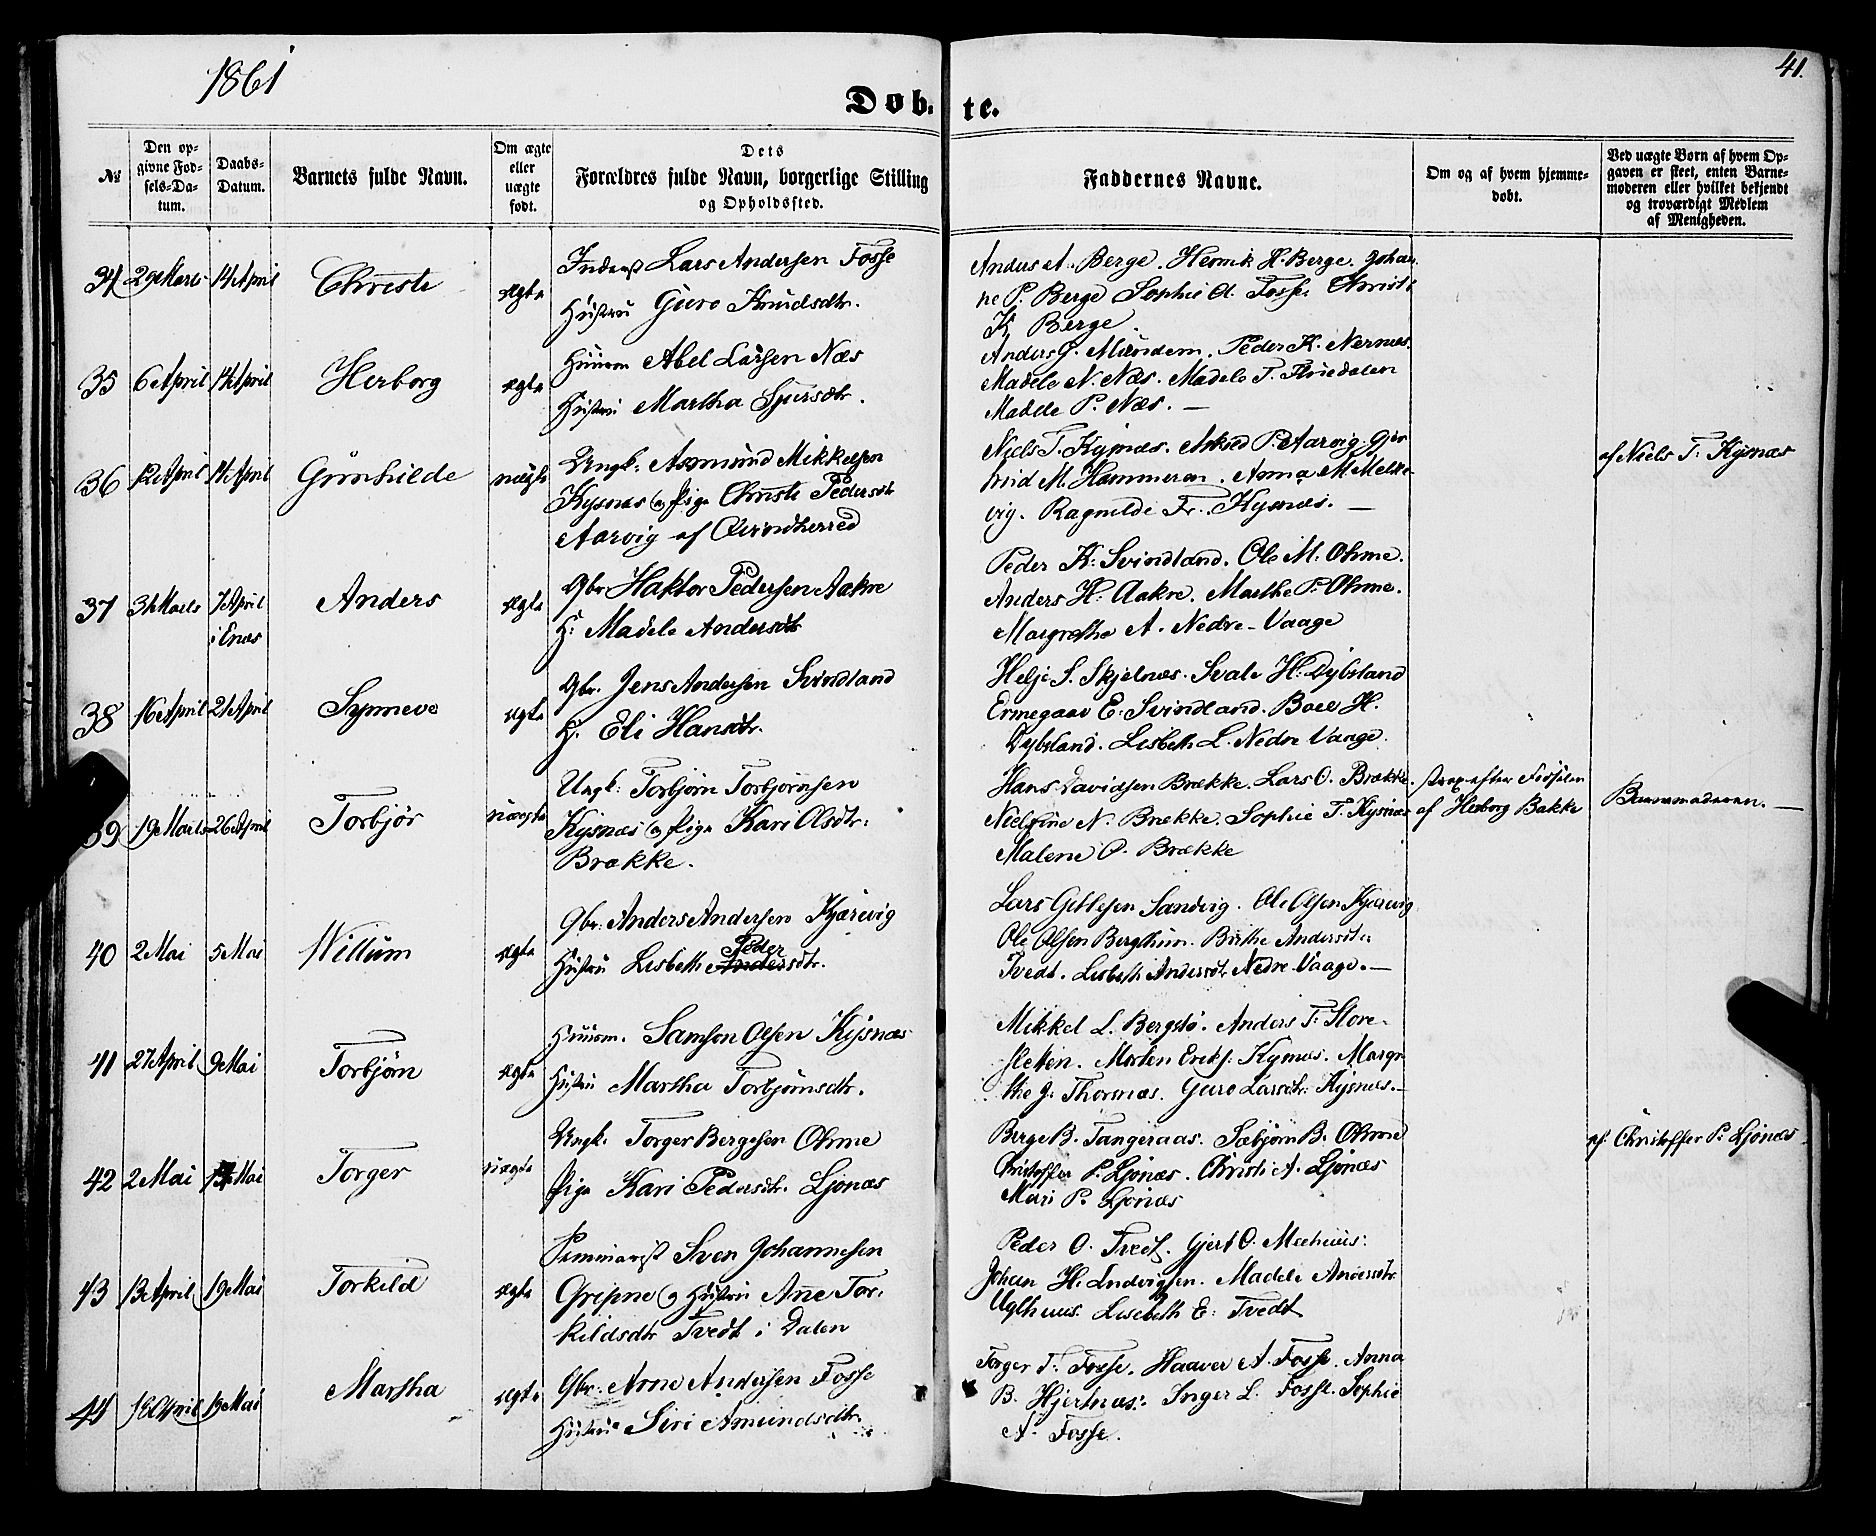 1861
41.
Døb- te.
№
Den op-
givne Fød-
sels-Da-
tum.
Daabs-
Datum.
Barnets fulde Navn.
Om ægte
eller
uægte
født.
Dets
Forældres fulde Navn, borgerlige Stilling
og Opholdssted.
Faddernes Navne.
Om og af hvem hjemme-
døbt.
Ved uægte Børn af hvem Op-
gaven er skeet, enten Barne-
moderen eller hvilket bekjendt
og troværdigt Medlem
af Menigheden.
34 29 Marts 14 April Christi ægte
Inderst Lars Andersen Fosse
Hustru Guro Knudsdtr.
Anders A. Berge. Henrik H. Berge. Johan-
ne P. Berge Sophie A. Fosse. Christi
K. Berge.
35 6 April 14 April Herborg ægte
Huusm Abel Larsen Næs
Hustru Martha Sjursdtr.
Anders J. Mundem. Peder K. Nernæs.
Madele N. Næs. Madele T.
Madele P. Næs. —
36 12 April 14 April Gunhilde uægte
Ungk: Asmund Mikkelsen
Kysnæs og Pige Christi Pedersdt
Aarvig af Qvindherred
Niels T. Kysnæs. P. Aarvig.
M. Hammeren. Anna M.
vig. Ragnilde Fr. Kysnæs. —
af Niels T. Kysnæs
37 31 Marts 7 April Anders ægte
i Enæs
Gbr Haktor Pedersen Aakre
H: Madele Andersdtr
Peder K. Svindland. Ole M. Ohme.
Anders H. Aakre. Marthe P. Ohme.
Margrethe A. Nedre-Vaage
38 16 April 21 April Synneve ægte
Gbr. Jens Andersen Svindland
H: Eli Hansdtr.
Helje S. Skjelnæs. Svale H. Dybsland
Ermegaar E. Svindland. Boel H.
Dybsland. Lisbeth L. Nedre Vaage.
39 19 Marts 26 April Torbjør uægte
Ungk: Torbjørn Torbjørnsen
Kysnæs og Pige Kari Olsdtr.
Brække.
Hans Davidsen Brække. Lars O. Brække.
Nielsine N. Brække. Sophie T. Kysnæs
Malene O. Brække
strax efter Fødselen
af Herborg Bakke
Barnemoderen. —
40 2 Mai 5 Mai Willum ægte
Gbr. Anders Andersen Kjærevig
Peder
Hustru Lisbeth Andersdtr.
Lars Gitlesen Sandvig. Ole Olsen Kjærevig
Ole Olsen Bergthun. Brithe Andersdtr
Tvedt. Lisbeth Andersdtr Nedre-Vaage. —
41 27 April 9 Mai Torbjørn ægte
Huusm. Samson Olsen Kysnæs
Hustru Martha Torbjørnsdtr.
Mikkel L. Bergstø. Anders T. Store-
sletten. Morten Eriks. Kysnæs. Margre-
the J. Thorsnæs. Guro Larsdtr. Kysnæs. —
42 2 Mai Mai Torger uægte
Ungk. Torger Bergesen Ohme
Pige Kari Pedersdtr. Ljonæs
Berge B. Tangeraas. Sæbjørn B. Ohme
Christoffer P. Ljonæs. Christi A. Ljonæs
Mari P. Ljonæs
af Christoffer P. Ljonæs
43 13 April 19 Mai Torkild ægte
Seminarist Sven Johannesen
Gripne og Hustru Ane Tor-
kildsdtr Tvedt i Dalen
Peder O. Tvedt. Gjert O. Meehuus.
Johan H. Ludvigsen. Madele Andersdtr
Uglhuus. Lisebeth E. Tvedt
44 18 April 19 Mai Martha ægte
Gbr. Arne Andersen Fosse
Hustru Siri Amundsdtr.
Torger T. Fosse. Haaver A. Fosse. Anna
B. Hjertnæs. Inger L. Fosse. Sophie
A. Fosse.